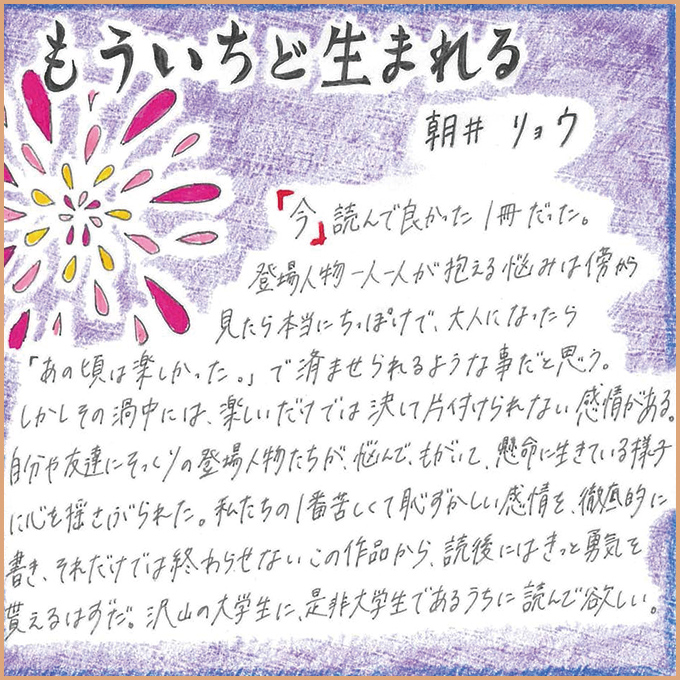 もういちど生まれる
朝井 リョウ
「今」読んで良かった1冊だった。
登場人物一人一人が抱える悩みは傍から
見たら本当にちっぽけで、大人になったら
「あの頃は楽しかった。」で済ませられるような事だと思う。
しかしその渦中には、楽しいだけでは決して片付けられない感情がある。
自分や友達にそっくりの登場人物たちが、悩んで、もがいて、懸命に生きている様子
に心を揺さぶられた。私たちの1番苦しくて恥ずかしい感情を、徹底的に
書き、それだけでは終わらせないこの作品から、読後にはきっと勇気を
貰えるはずだ。沢山の大学生に、是非大学生であるうちに読んで欲しい。